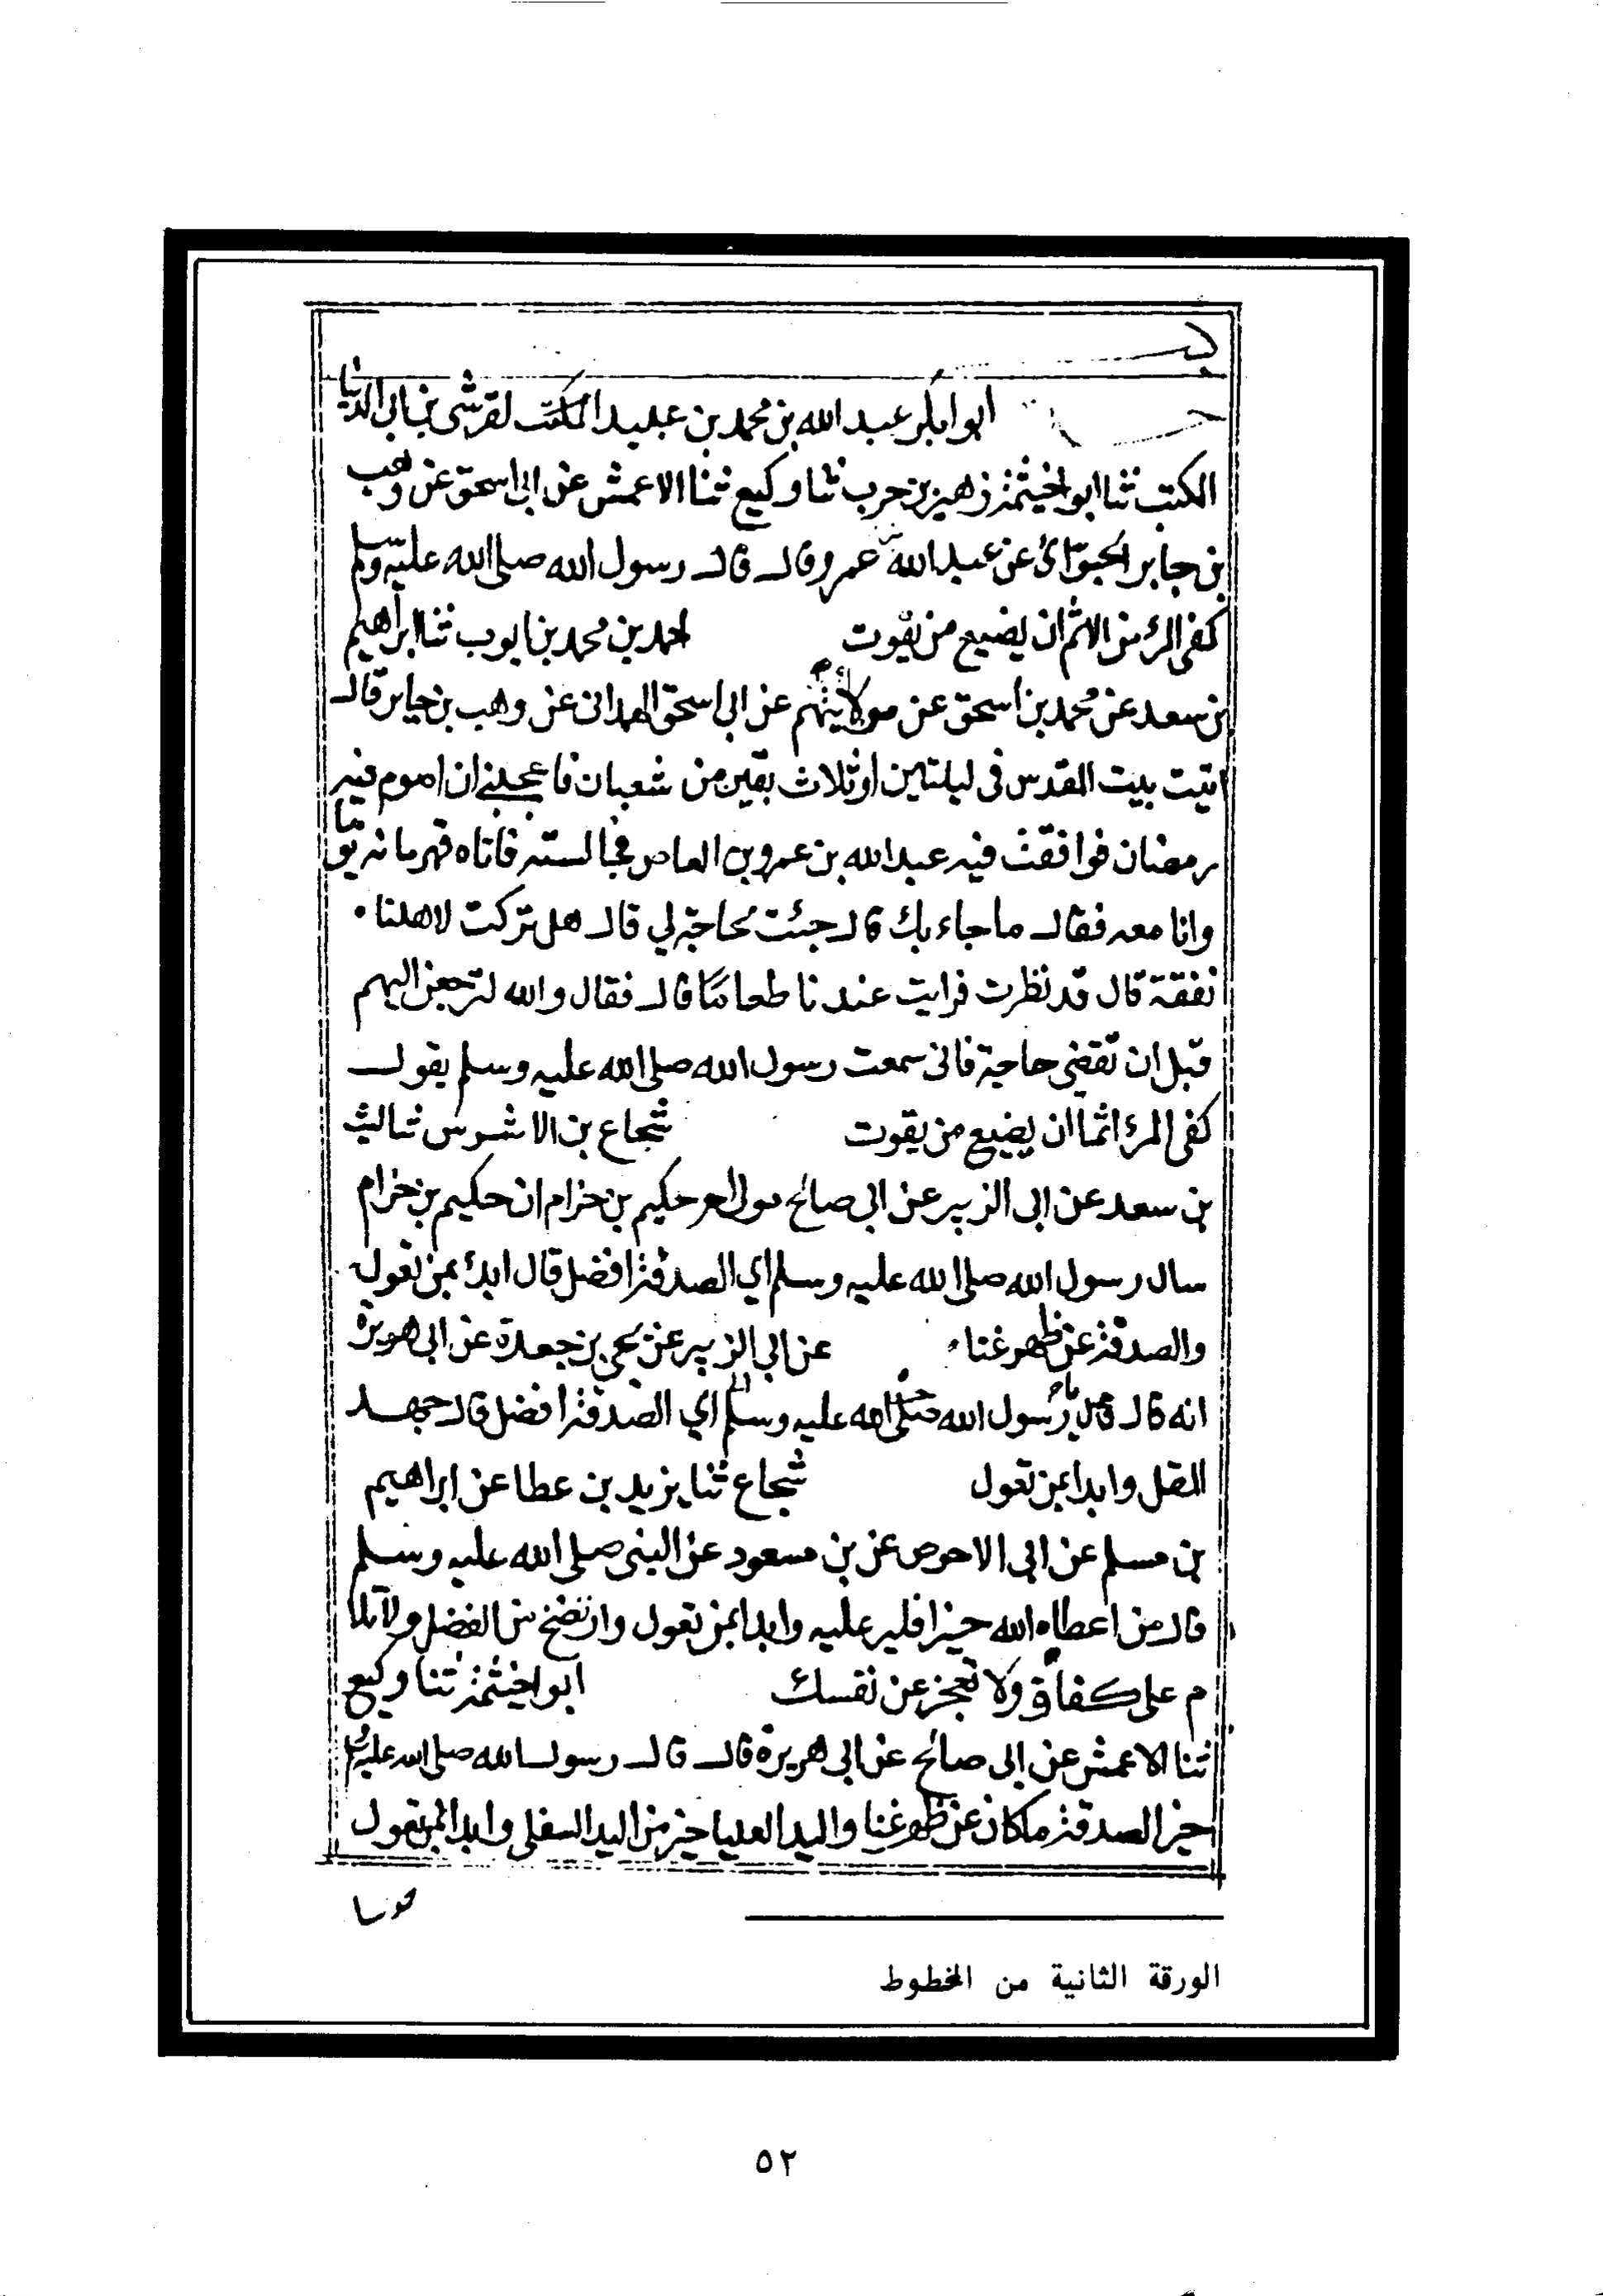 ابوابكر عبد الله بن محمد بن عبيد المكتب لقرشى بن ابى الدنيا
الكتب ثنا ابو اخيثمة زهير بن حرب ثنا وكيع ثنا الاعمش عن ابى اسحق عن وهب
بن جابر عن عبد الله بن عمرو قال قال رسول الله صلى الله عليه وسلم
كفى المرء من الاثم ان يضيع من يقوت احمد بن محمد بن ايوب ثنا ابراهيم
بن سعد عن محمد بن اسحق عن عن ابى اسحق الهمدانى عن وهب بن جابر قال
اتيت بيت المقدس فى ليلتين او ثلاث بقين من شعبان فاعجبنى ان اصوم فيه
رمضان فوافقت فيه عبد الله بن عمرو بن العاص فجالسته فاتاه قهرمانه يوما
وانا معه فقال ما جاء بك قال جئت لحاجة لي قال هل تركت لاهلنا
نفقة قال قد نظرت فرايت عندنا طعاما قال فقال والله لترجعن اليهم
قبل ان تقضى حاجة فانى سمعت رسول الله صلى الله عليه وسلم يقول
كفى المرء اثما ان يضيع من يقوت شجاع بن الاشرس ثنا ليث
بن سعد عن ابى الزبير عن ابى صالح مولى حكيم بن حزام ان حكيم بن حزام
سال رسول الله صلى الله عليه وسلم اي الصدقة افضل قال ابدء بمن تعول
والصدقة عن ظهر غناء عن ابى الزبير عن يحيى بن جعدة عن ابى هويرة
انه قال يا رسول الله صلى الله عليه وسلم اي الصدقة افضل قال جهد
المقل وابدا بمن تعول شجاع ثنا يزيد بن عطا عن ابراهيم
بن مسلم عن ابى الاحوص عن بن مسعود عن النبى صلى الله عليه وسلم
قال من اعطاه الله خيرا فلير عليه وابدا بمن تعول وارتضخ من الفضل ولا تلا
م على كفاف ولا تعجز عن نفسك ابو اخيثمة ثنا وكيع
ثنا الاعمش عن ابى صالح عن ابى هريرة قال قال رسول الله صلى الله عليه وسلم
خير الصدقة ما كان عن ظهر غنا واليد العليا خير من اليد السفلى وابدا بمن تعول
الورقة الثانية من المخطوط
٥٢